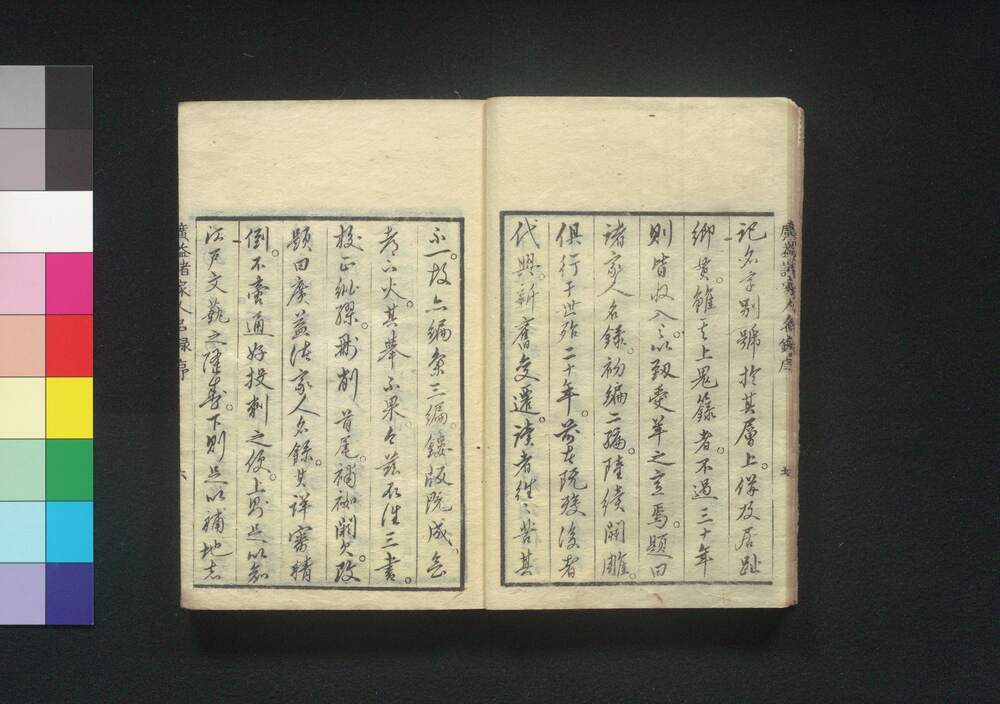 記名字別號於其屬上。併及居趾
鄉貫。雖
上鬼籙者。不過三十年
則皆收入之。以
愛羊之意焉。題曰
諸家人名錄。初編二編。陸續開雕。
俱行于世殆二十年。
在既殁後者
代興。新舊變遷。讀者往々苦其
不一。故
編
三編。鏤版既成。
火。其舉不果。今茲
三書。
校正紕繆。刪削首尾。補
闕久。改
題曰廣益諸家人名錄。其詳審精
到。不啻通好投刺之便。上則足以知
江戶文藝之隆盛。下則足以補地志
廣益諸家人名錄序
六
廣益諸家人名錄序
五